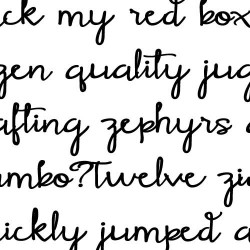 ck my red box
gen quality jug
afting zephyrs
umbo?Twelve zi
uickly jumped a